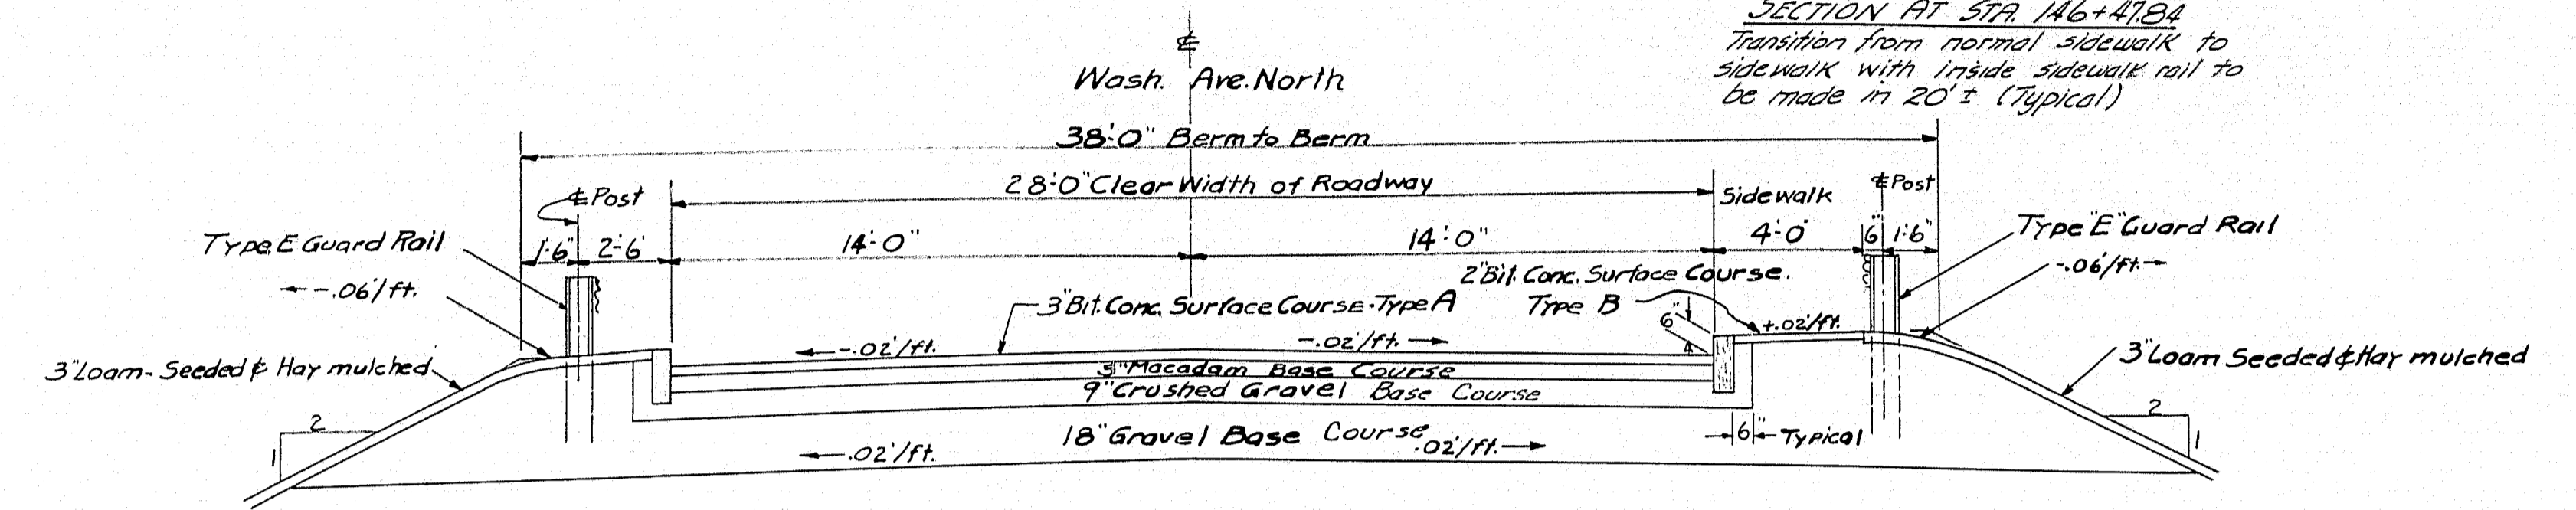 SECTION AT STA. 146+47.84
Transition from normal sidewalk to
sidewalk with inside sidewalk rail to
be made in 20'± (Typical)
℄
Wash. Ave. North
38'-0" Berm to Berm
28'-0" Clear Width of Roadway
℄ Post
Sidewalk
℄ Post
Type E Guard Rail
1'-6"
2'-6"
14'-0"
14'-0"
4'-0
6"
1'-6"
Type "E" Guard Rail
-.06'/ft.
-.06'/ft.
2" Bit. Conc. Surface Course.
Type B
3" Bit. Conc. Surface Course - Type A
6"
+.02'/ft.
-.02'/ft.
-.02'/ft.
3" Loam - Seeded & Hay mulched
3" Loam Seeded & Hay mulched
3" Macadam Base Course
9" Crushed Gravel Base Course
18" Gravel Base Course
.02'/ft.
.02'/ft.
6" Typical
2
1
2
1